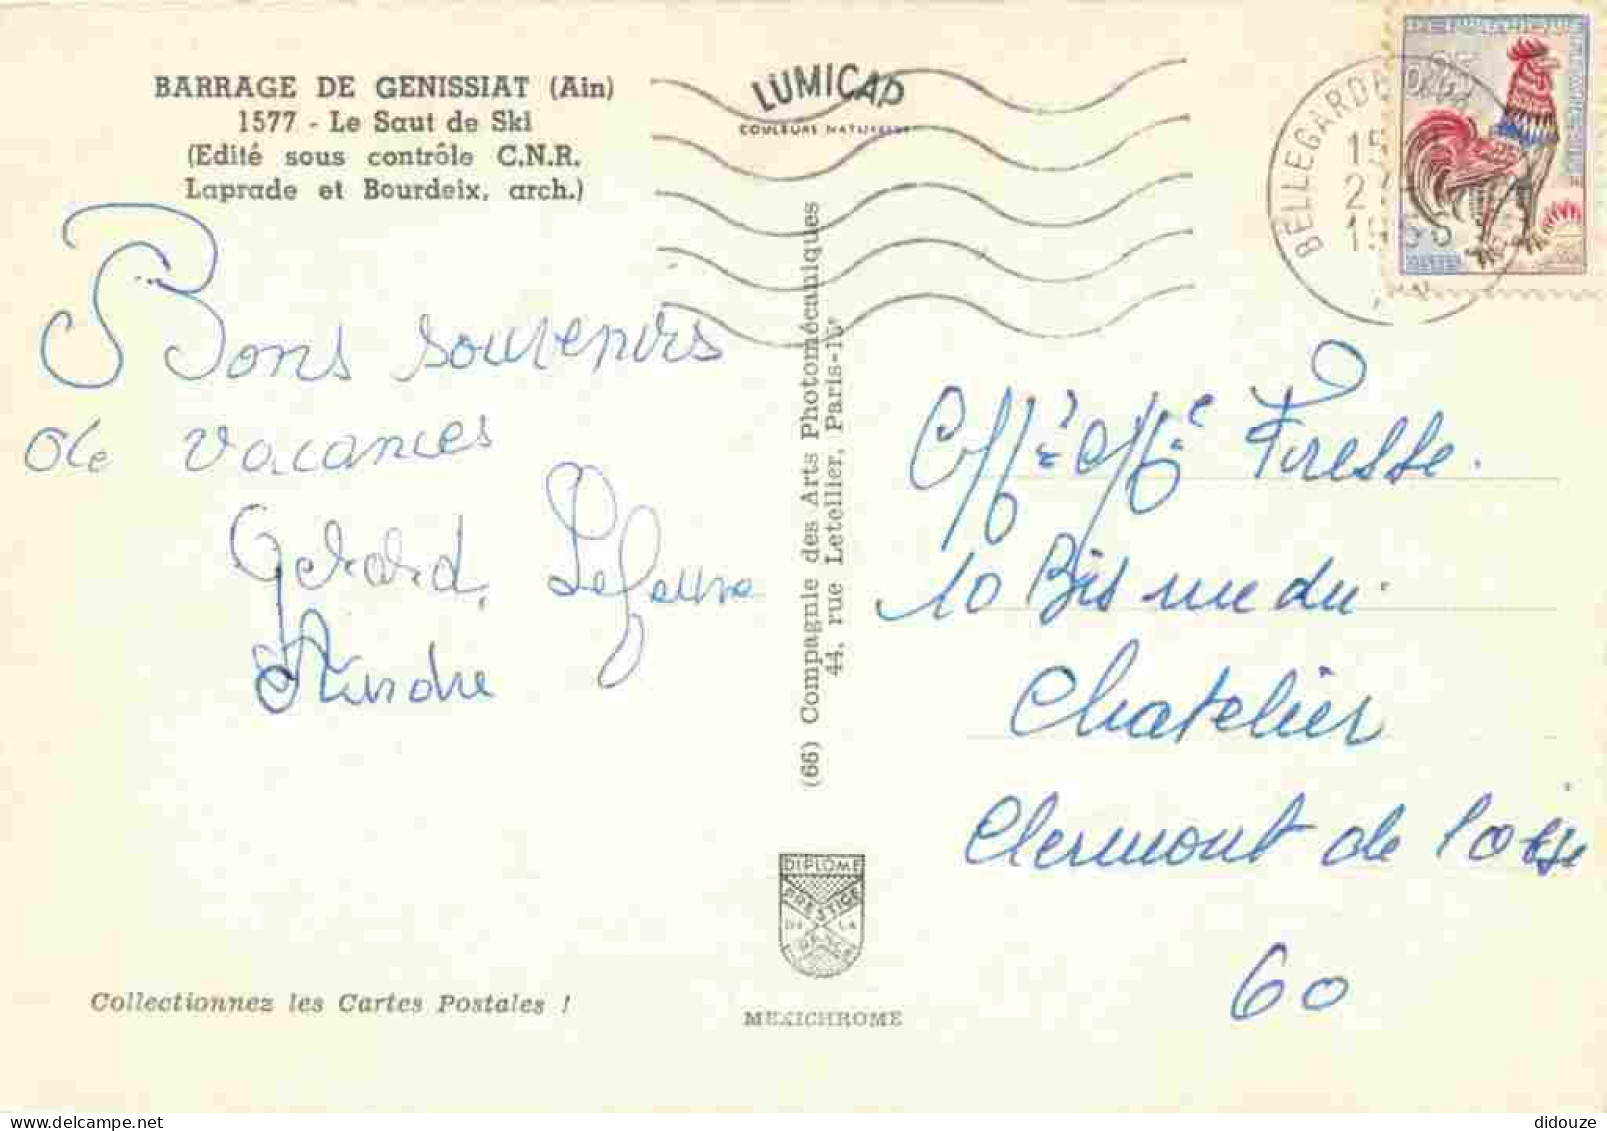 BARRAGE DE GENISSIAT (Ain)
1577 - Le Saut de Ski
(Edité sous contrôle C.N.R.
Laprade et Bourdeix, arch.)
LUMICAP
COULEURS NATURELLES
BELLEGARDE
15
1966
Bons souvenirs
de vacances
Gerard, Lefebvre
Andre
(66) Compagnie des Arts Photomécaniques
44, rue Letellier, Paris-15e
Firesse.
10 Bis rue du
Chatelier
Clermont de l'oise
60
DIPLOME
PRESTIGE
DE LA
FRANCE
MEXICHROME
Collectionnez les Cartes Postales !
didouze